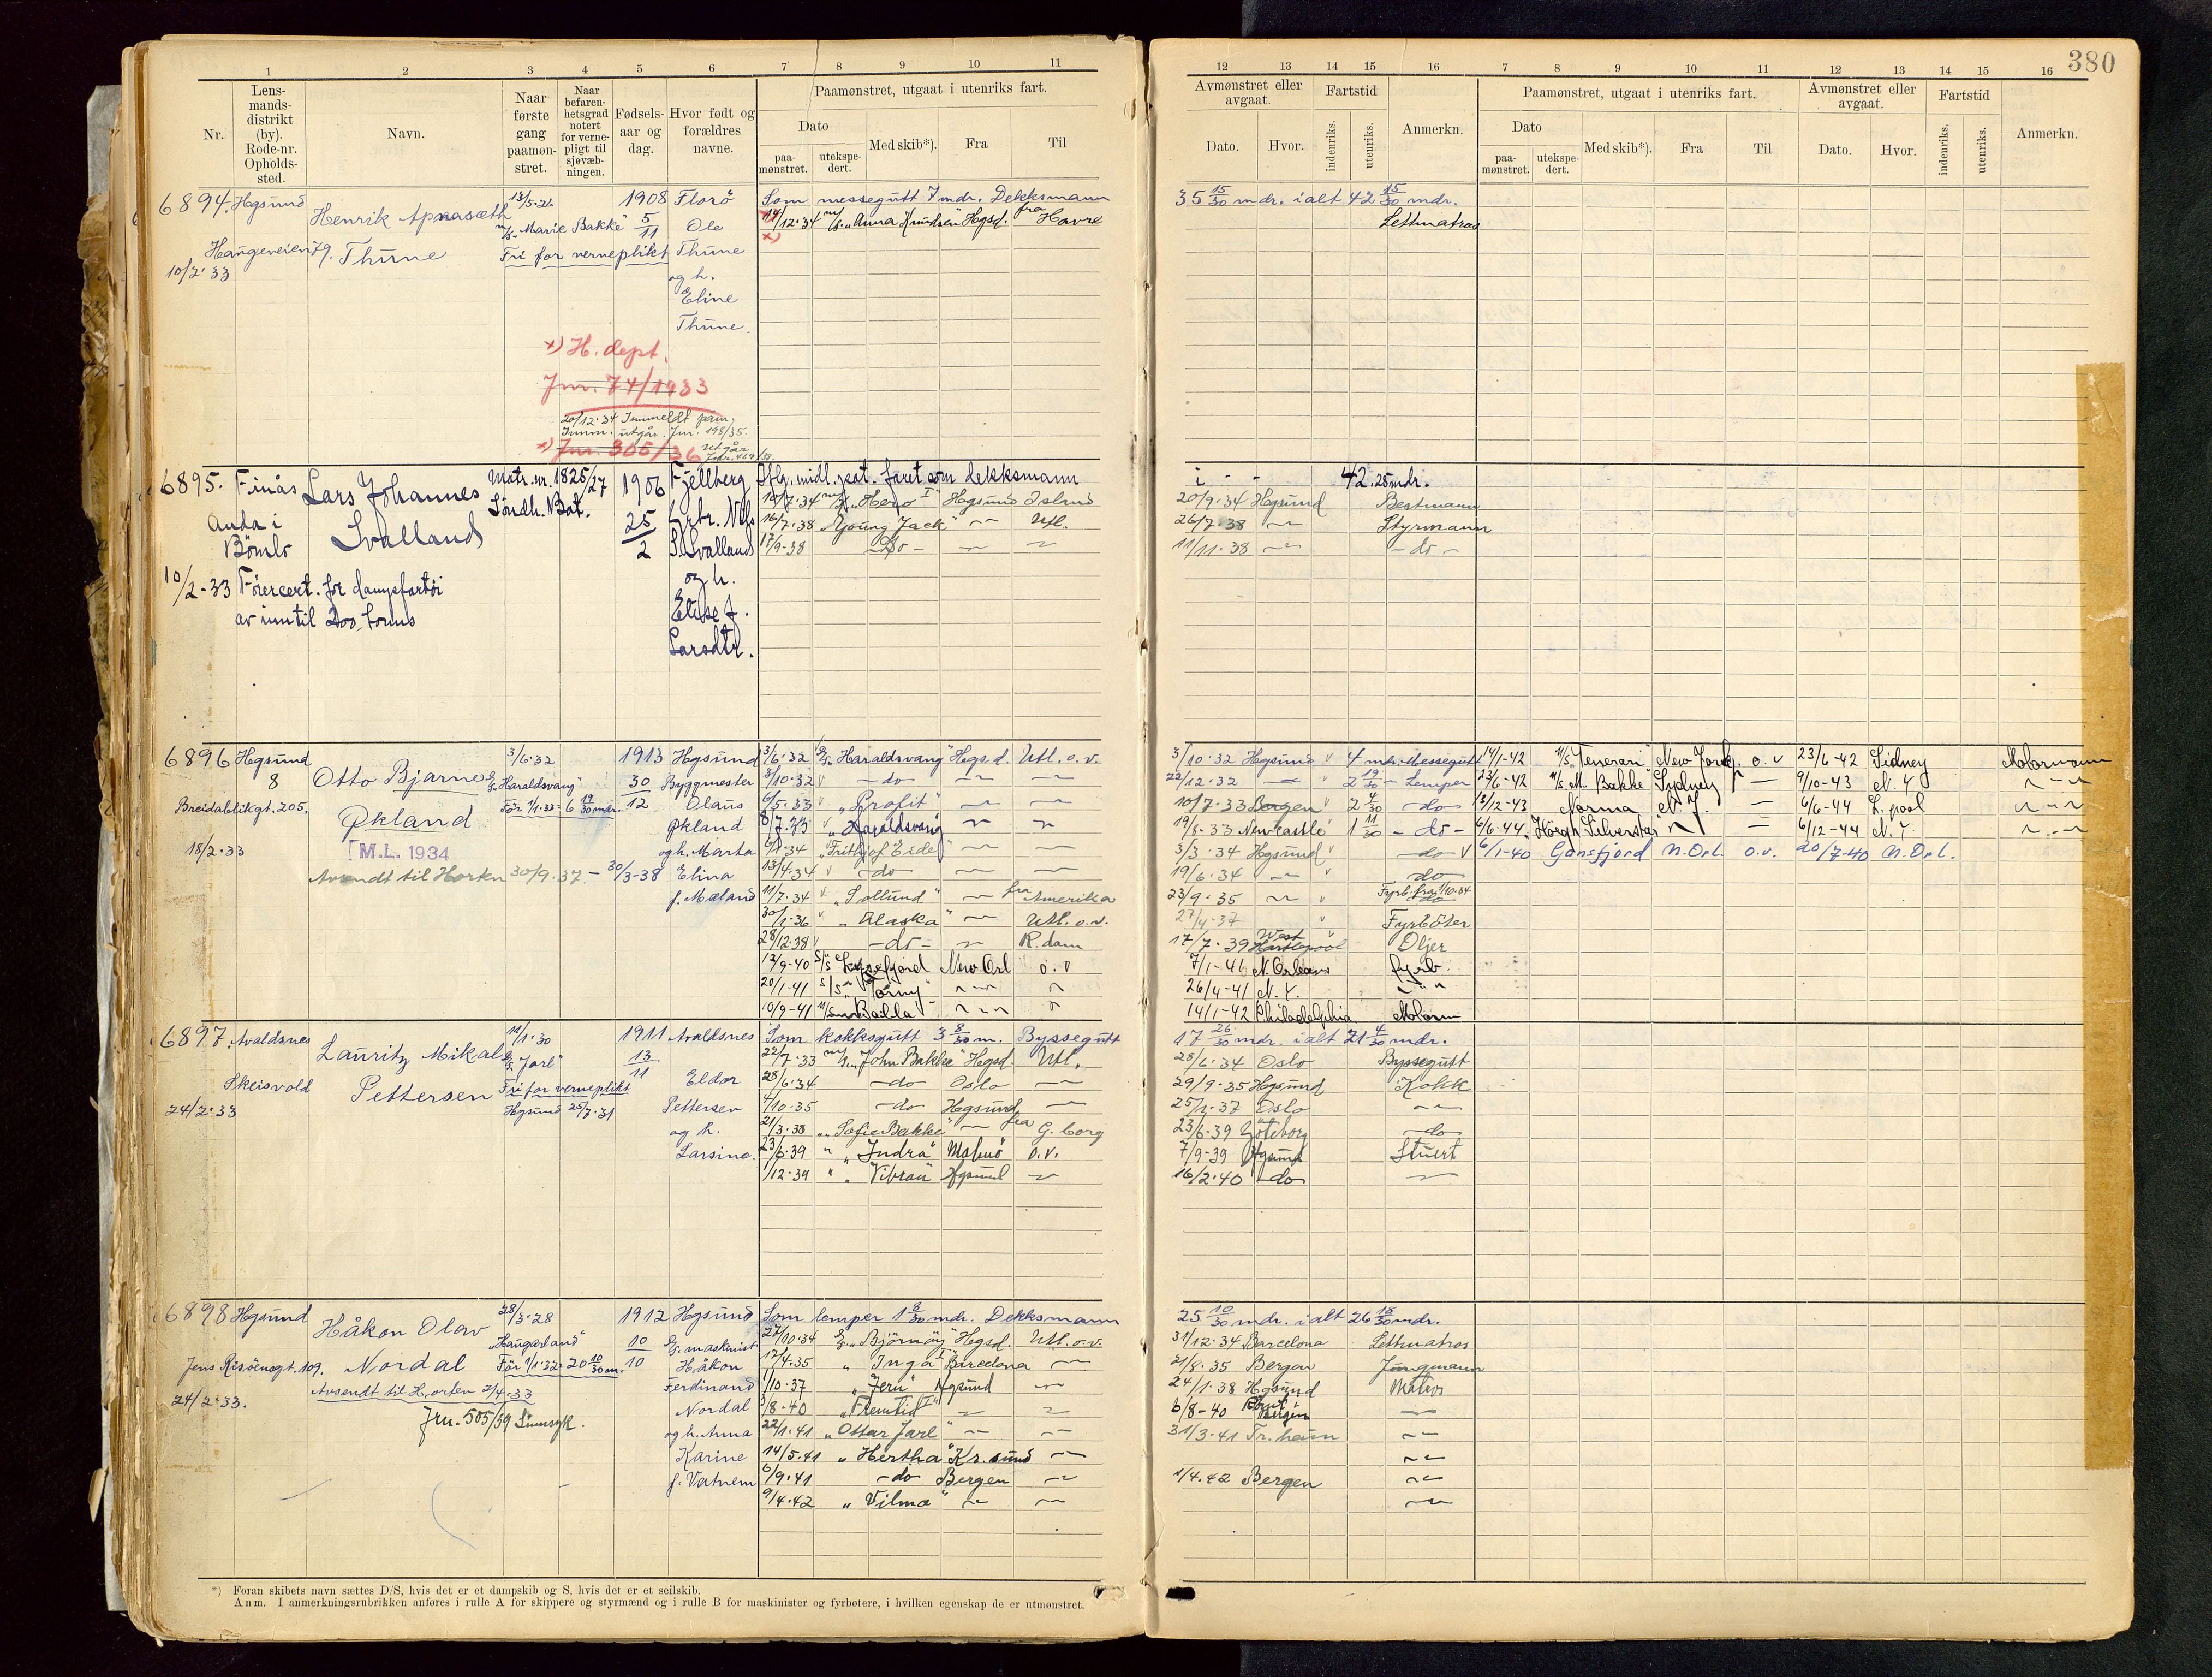 380
1 2 3 4 5 6 7 8 9 10 11
Nr.
Lens-
mands-
distrikt
(by).
Rode-nr.
Opholds-
sted.
Navn.
Naar
første
gang
paamøn-
stret.
Naar
befaren-
hetsgrad
notert
for verne-
pligt til
sjøvæb-
ningen.
Fødsels-
aar og
dag.
Hvor født og
forældres
navne.
Paamønstret, utgaat i utenriks fart.
Dato
paa-
mønstret.
utekspe-
dert.
Med skib*).
Fra
Til
12 13 14 15 16 7 8 9 10 11 12 13 14 15 16
Avmønstret eller
avgaat.
Dato.
Hvor.
Fartstid
indenriks.
utenriks.
Anmerkn.
Paamønstret, utgaat i utenriks fart.
Dato
paa-
mønstret.
utekspe-
dert.
Med skib*).
Fra
Til
Avmønstret eller
avgaat.
Dato.
Hvor.
Fartstid
indenriks.
utenriks.
Anmerkn.
6894. Hgsund
Henrik
Thune
Haugeveien 79.
10/2.33
"Marie Bakke"
Fri for verneplikt
1908
5/11
Florö
Ole
Thune
og h.
Eline
Thune.
Som messegutt 7 mdr. Dekksmann
35 15/30 mdr. i alt 42 15/30 mdr.
12.34 m/s. "Anna Knudsen" Hgsd. fra Havre
Lettmatros
x) H. dept.
Jnr. 74/1933
20/12.34 Innmeldt
utgår. Jnr. 198/35.
x) Jnr. 305/36 utgår
6895. Finås
Lars Johannes
Svalland
Auda i
Bömlo
10/2-33 Förercert. for dampfartöi
av inntil 200 tonns
Matr. nr. 1825/27
Söndh. Bat.
1906
25/2
Fjellberg
Nils
Svalland
og h.
Elise f.
Larsdtr.
faret som dekksmann
i - - 42.25 mdr.
7.34 "Hero I" Hgsund Island
20/9.34 Hgsund Bestmann
16/7.38 "Young Jack" — Utl.
26/7.38 — Styrmann
17/9-38 - Do - — —
11/11.38 — - do -
6896 Hgsund
8
Breidablikgt. 205.
18/2.33
Otto Bjarne
Økland
M.L. 1934
Avsendt til Horten 30/9.37 - 30/3-38
3/6.32
"Haraldsvang"
För 1/1.33: 6 19/30 mdr.
1913
30/12
Hgsund
Byggmester
Olaus
Økland
og h. Marta
Elina
f. Mæland
3/6.32 "Haraldsvang" Hgsd. Utl. o.v.
3/10.32 Hgsund 4 mdr. Messegutt
3/10.32 - do - — —
22/12.32 — 2 19/30 - Lemper
6/5.33 "Profit" — —
10/7-33 Bergen 2 - do -
8/7.33 "Haraldsvang" — —
19/8-33 Newcastle 1 11/30 - do -
6/1.34 "Frithjof Eide" — —
3/3.34 Hgsund - do
13/4.34 - do - — —
19/6.34 — do
11/7.34 "Sollund" — fra Amerika
23/9.35 — Fyrb. fra 1/10.34
30/1.36 "Alaska" — Utl. o.v.
27/4.37 Fyrböter
28/12.38 - do - — R.dam
17/7.39 West Hartlepool Oljer
13/9-40 S/S Lysefjord New Orl o.v
7/1-41 N. Orleans fyrb.
20/1-41 S/S "Torny" — —
26/4-41 N.Y. —
10/9-41 "Bailla" — —
14/1-42 Philadelphia Motorm
14/1-42 M/S "Temerari" New York o.v 23/6-42 Sidney Motormann
23/6-42 M/S "M. Bakke" Sydney — 9/10-43 N.Y —
13/12-43 Norma N.Y. — 6/6-44 L.pool —
6/6-44. Höegh "Silverstar" — — 6/12-44 N.Y. —
6/1-40 Gansfjord N.Orl. o.v. 20/7-40 N.Orl.
6897. Avaldsnes
Skeisvold
24/2.33
Lauritz Mikal
Pettersen
11/1.30
"Jarl"
Fri for verneplikt
Hgsund 25/7.31
1911
13/11
Avaldsnes
Eldor
Pettersen
og h.
Larsine.
Som kokksgutt 3 8/30 m. Byssegutt
17 26/30 mdr. i alt 21 4/30 mdr.
22/7.33 "John Bakke" Hgsd. Utl.
28/6.34 Oslo Byssegutt
28/6.34 - do Oslo —
29/9.35 Hgsund Kokk
4/10.35 - do Hgsund —
25/1.37 Oslo —
21/3.38 "Sofie Bakke" — fra G.borg
23/6.39 Göteborg - do
23/6.39 "Indra" Malmö o.v.
7/9-39 Hgsund Stuert
1/12.39 "Vibran" Hgsund —
16/2.40 - do —
6898 Hgsund
Jens Risöensgt. 109.
24/2.33.
Håkon Olav
Nordal
Avsendt til Horten 2/4.33
Jnr. 505/39 Sinnsyk.
28/3.28
"Haugarland"
För 1/1.32: 20 10/30 m.
1912
10/10
Hgsund
maskinist
Håkon
Ferdinand
Nordal
og h. Anna
Karine
f. Vatnem
Som lemper 1 8/30 mdr. Dekksmann
25 10/30 mdr. i alt 26 18/30 mdr.
27/10.34 "Björnöy" Hgsd. Utl. o.v.
31/12.34 Barcelona Lettmatros
17/4.35 "Inga I" Barcelona —
21/8.35 Bergen Jungmann
1/10.37 "Jern" Hgsund —
24/1.38 Hgsund Matros
3/8-40 "Fremtid I" — —
6/8-40 Bergen —
22/1.41 "Ottar Jarl" — —
31/3.41 Tr.heim —
14/5.41 "Hertha" Kr.sund —
6/9.41 - do Bergen —
1/4.42 Bergen —
9/4.42 "Vilma" — —
*) Foran skibets navn sættes D/S, hvis det er et dampskib og S, hvis det er et seilskib.
Anm. I anmerkningsrubrikken anføres i rulle A for skippere og styrmænd og i rulle B for maskinister og fyrbøtere, i hvilken egenskap de er utmønstret.